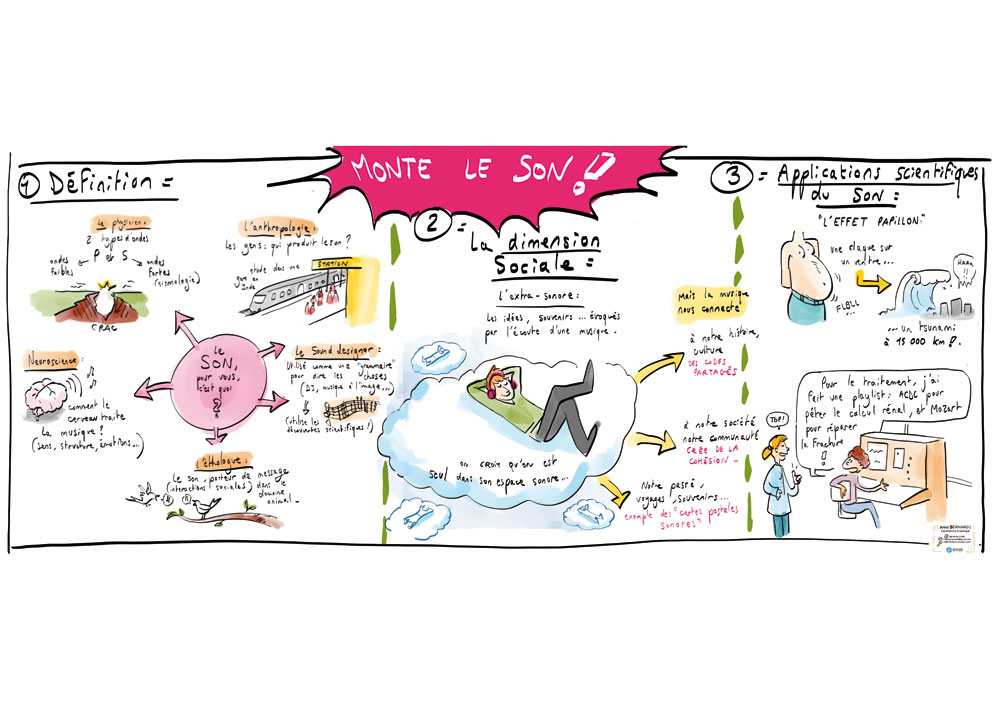 MONTE LE SON !?
1 DÉFinition =
Le physicien :
2 types d'ondes
P et S
ondes
faibles
ondes
fortes
(sismologie)
CRAC
l'anthropologie :
Les gens : qui produit le son ?
étude dans une
gare en
Inde
STATION
Neuroscience :
comment le
cerveau traite
la musique ?
(sens, structure, émotions...)
Le
SON,
pour vous,
c'est quoi
?
Le Sound designer :
Utilisé comme une "grammaire"
pour dire les choses
(DJ, musique à l'image...)
(utilise les
découvertes scientifiques !)
l'éthologue :
Le son, porteur de message
(interactions sociales) dans le
domaine
animal -
2 = La dimension
Sociale =
l'extra-sonore :
Les idées, souvenirs ... évoqués
par l'écoute d'une musique.
on croit qu'on est
seul dans son espace sonore...
Mais la musique
nous connecte
à notre histoire,
culture
DES CODES
PARTAGÉS
à notre société
notre communauté
CRÉE DE LA
COHÉSION -
Notre passé,
voyages, souvenirs...
exemple des "cartes postales
sonores"
3 = Applications scientifiques
du Son =
"L'EFFET PAPILLON:"
une claque sur
un ventre...
FLBLL
HAAA
!!
... un tsunami
à 15 000 km !.
TOP!
Pour le traitement, j'ai
fait une playlist : ACDC pour
péter le calcul rénal, et Mozart
pour réparer
la fracture
!
Anne BERNARDI